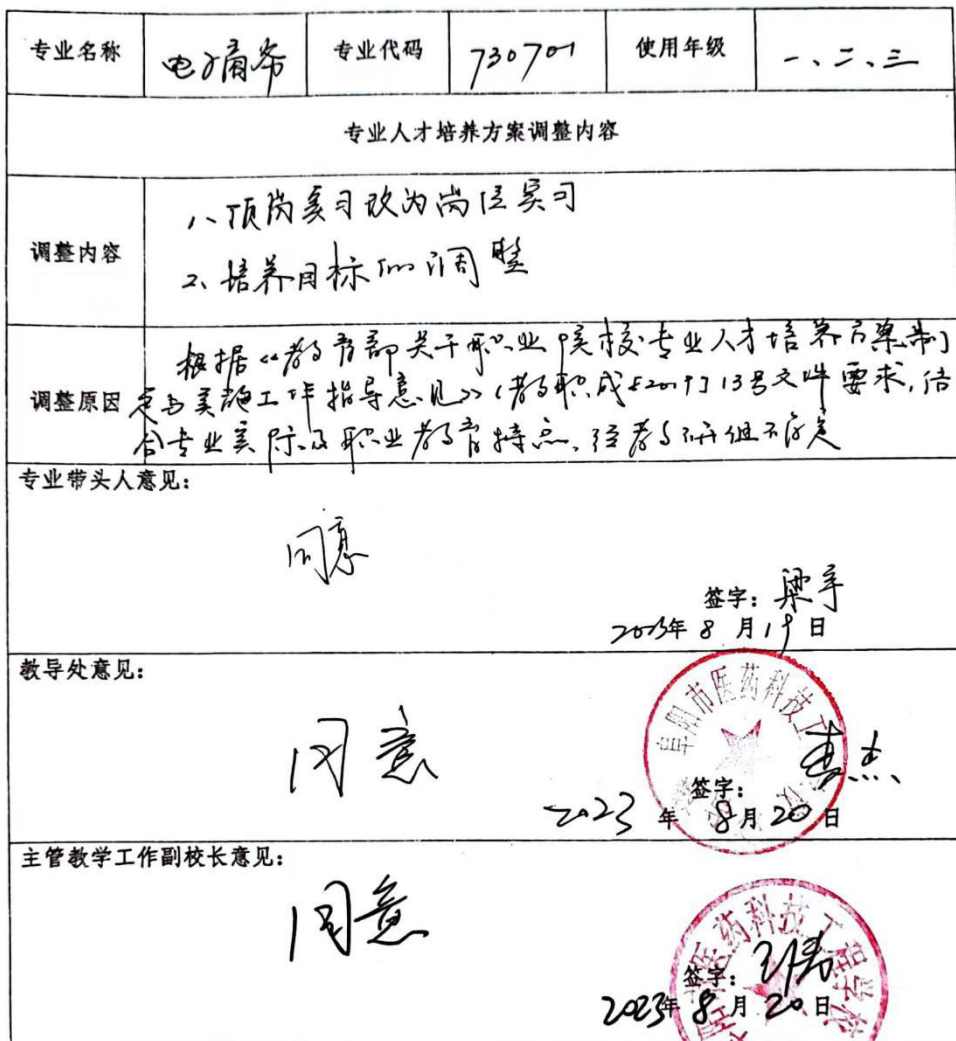 专业名称 电子商务 专业代码 730701 使用年级 一、二、三
专业人才培养方案调整内容
调整内容
1、顶岗实习改为岗位实习
2、培养目标的调整
调整原因
根据《教育部关于职业院校专业人才培养方案制
定与实施工作指导意见》(教职成[2019]13号文件要求,结
合专业实际及职业教育特点、经教研组
专业带头人意见:
同意
签字:
2023年 8 月 19 日
教导处意见:
同意
阜阳市医药科技工
签字:
2023 年 8 月 20 日
主管教学工作副校长意见:
同意
医药科技工
签字:
2023年 8 月 20 日